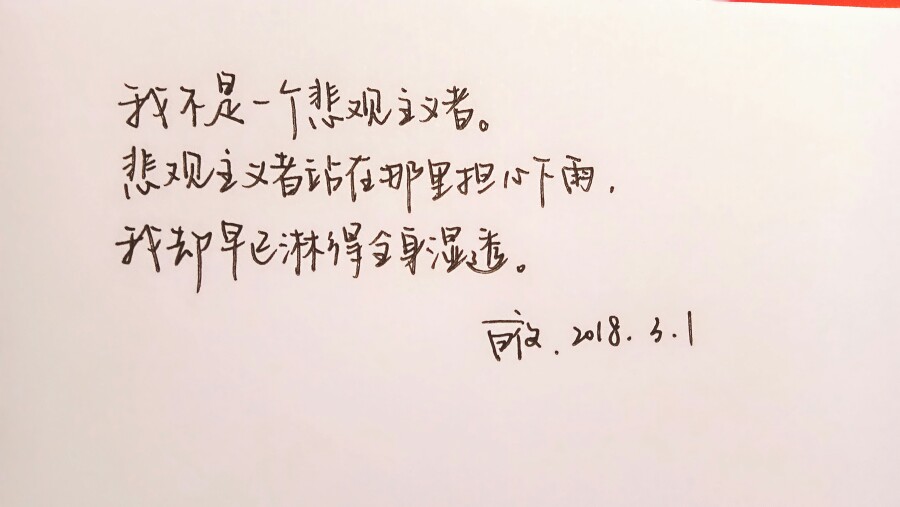 我不是一个悲观主义者。
悲观主义者站在那里担心下雨,
我却早已淋得全身湿透。
百夜.2018.3.1